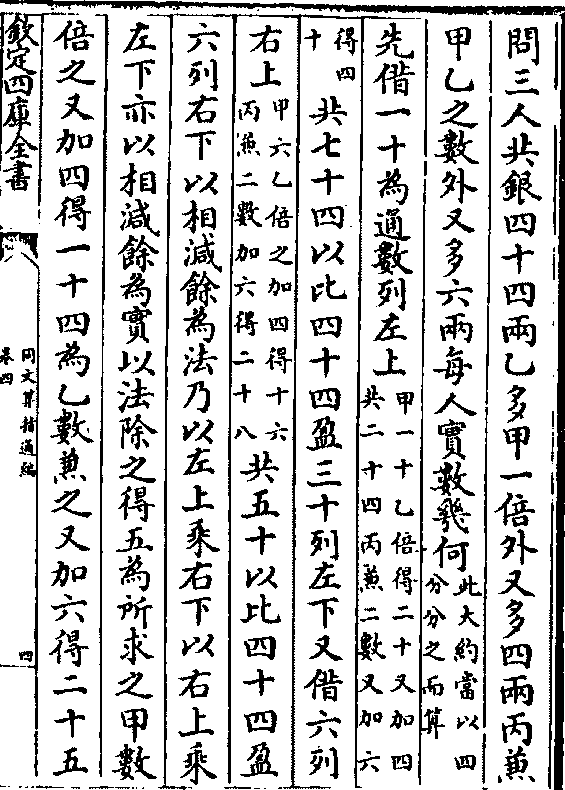 問三人共銀四十四兩乙多甲一倍外又多四兩丙兼
甲乙之數外又多六兩每人實數幾何此大約當以四
分分之而算
先借一十為通數列左上甲一十乙倍得二十又加四
共二十四丙兼二數又加六
得四
十共七十四以比四十四盈三十列左下又借六列
右上甲六乙倍之加四得十六
丙兼二數加六得二十八共五十以比四十四盈
六列右下以相減餘為法乃以左上乘右下以右上乘
左下亦以相減餘為實以法除之得五為所求之甲數
倍之又加四得一十四為乙數兼之又加六得二十五
欽定四庫全書
同文算指通編
卷四
四